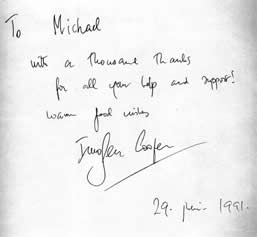 To Michael
with a thousand thanks
for all your help and support!
warm good wishes
Imogen Cooper
29. juin. 1991.